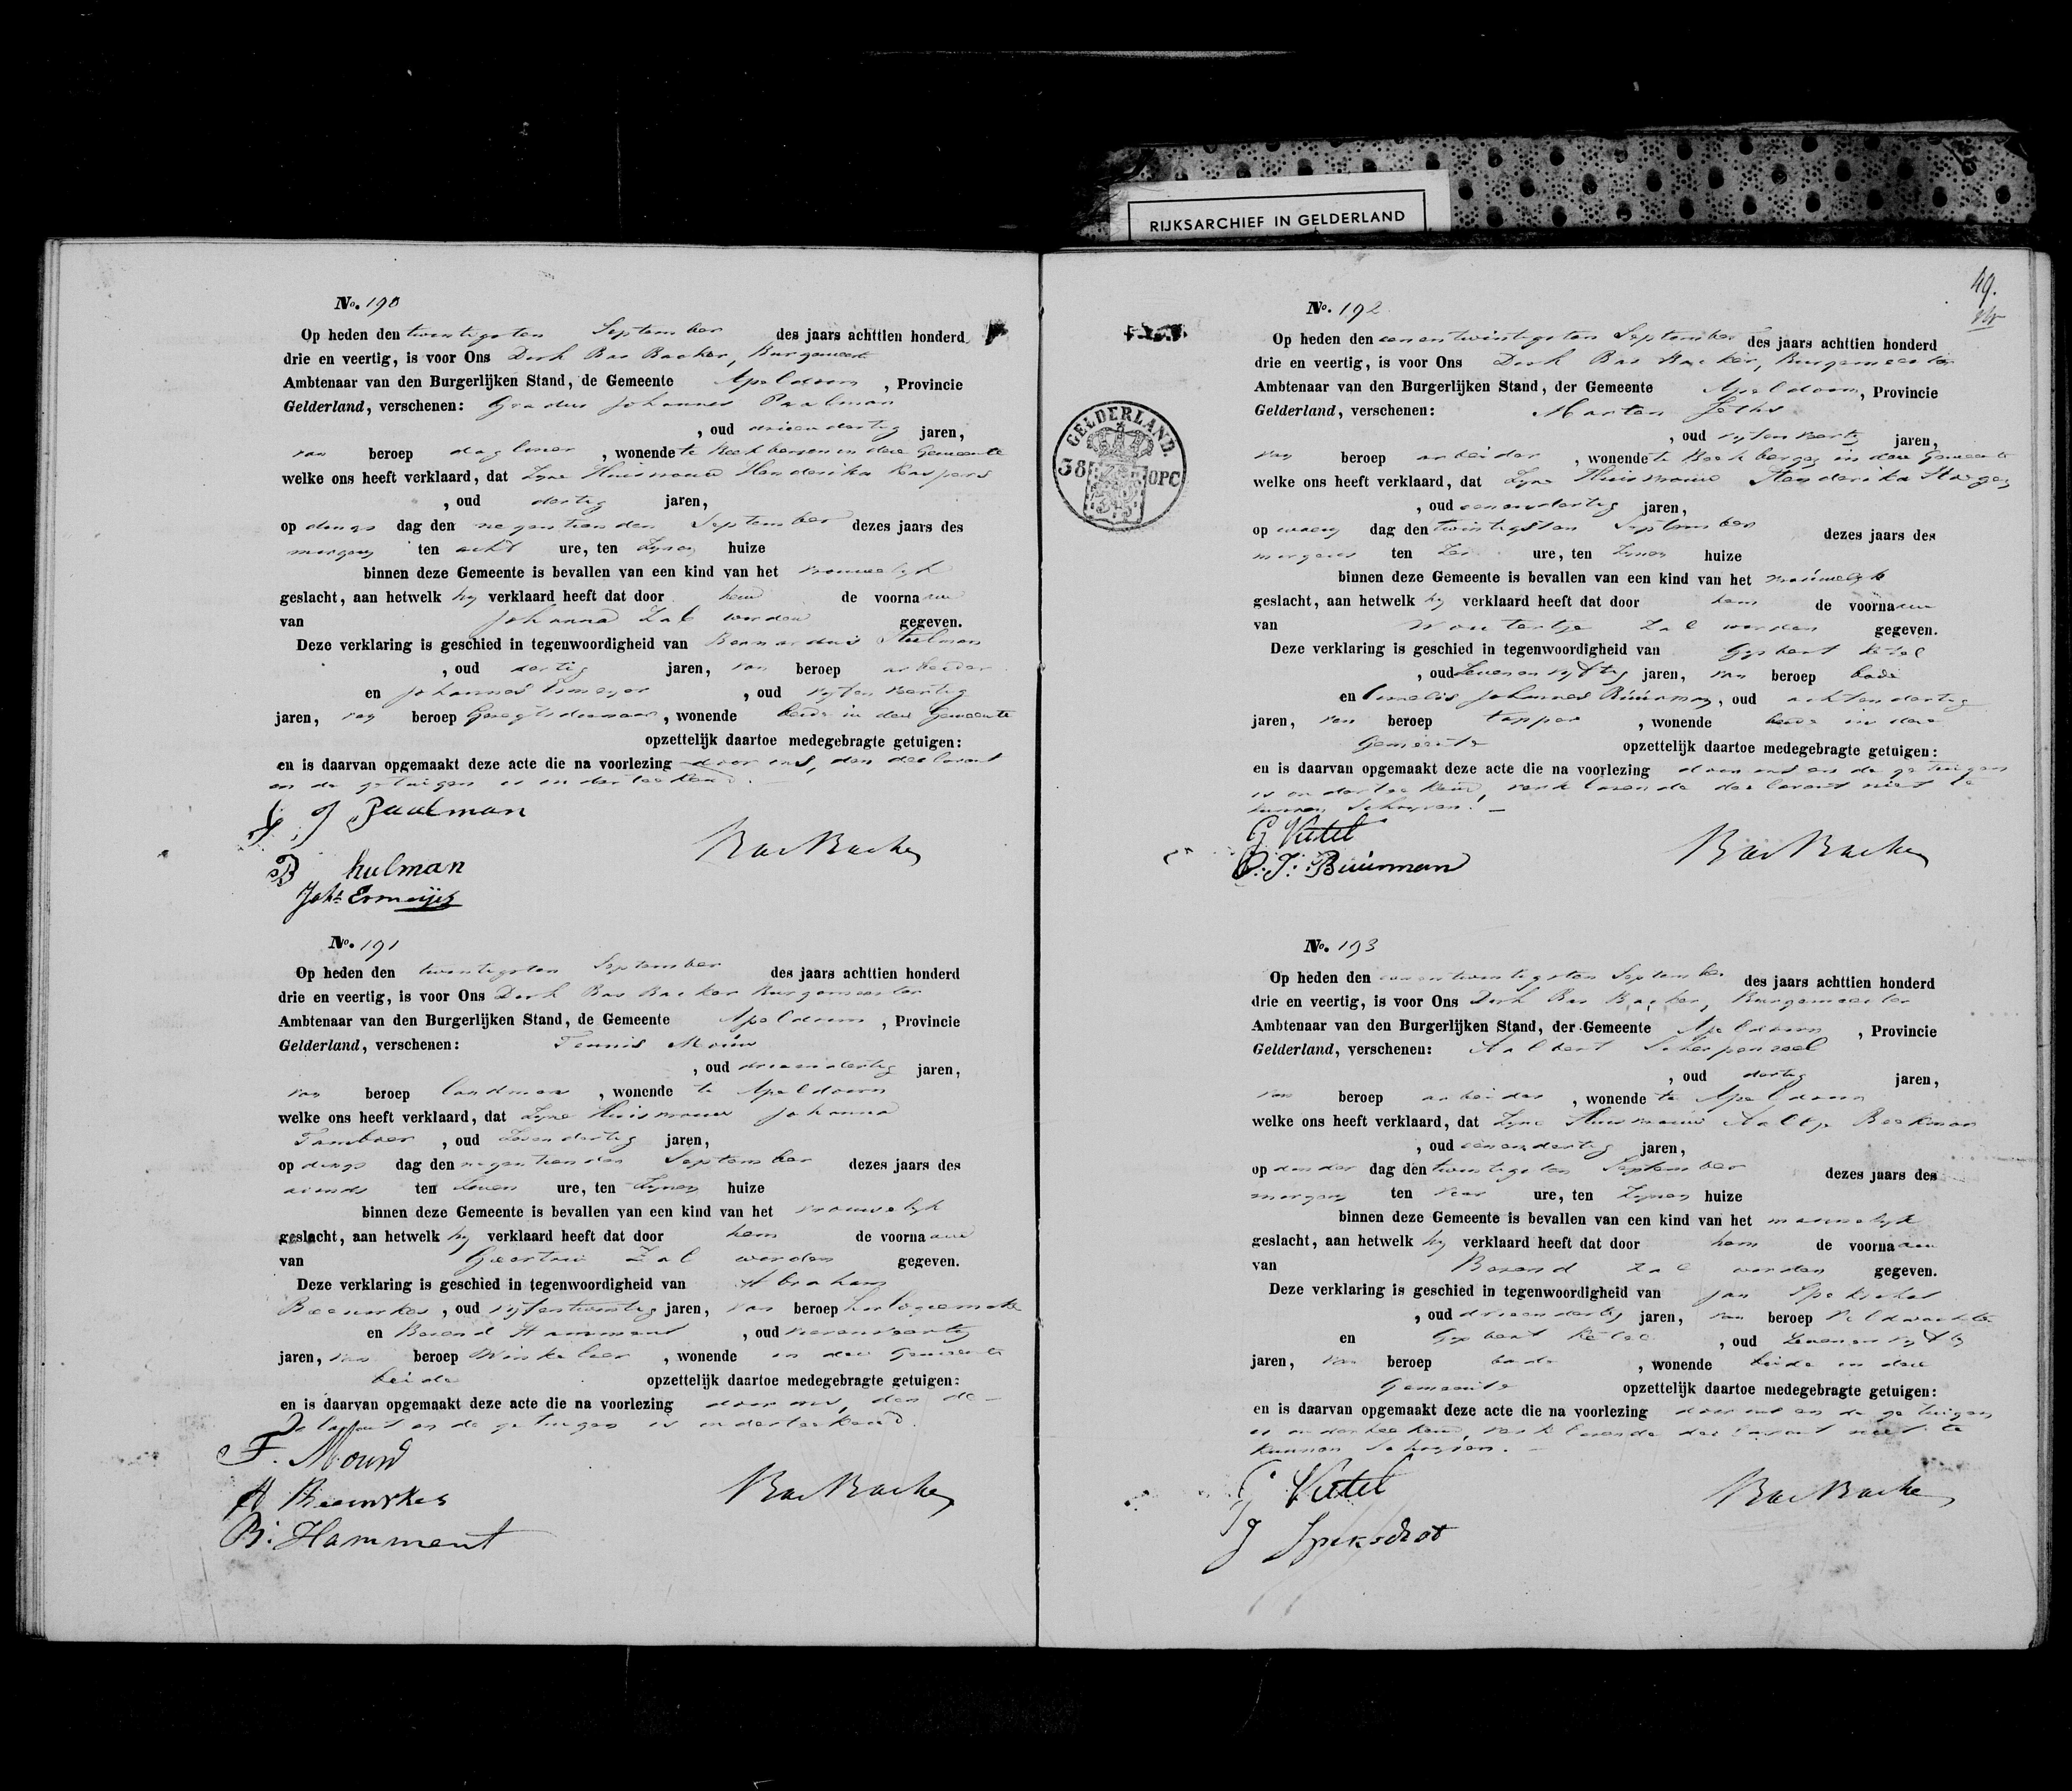 RIJKSARCHIEF IN GELDERLAND
No. 190
Op heden den twintigsten September des jaars achttien honderd
drie en veertig, is voor Ons Dirk Bas Backer, Burgemeester
Ambtenaar van den Burgerlijken Stand, de Gemeente Apeldoorn, Provincie
Gelderland, verschenen: Gradus Johannes Paalman
, oud drieendertig jaren,
van beroep daglooner, wonende te Beekbergen in deze Gemeente
welke ons heeft verklaard, dat Zyne Huisvrouw Henderika Kaspers
, oud dertig jaren,
op dings dag den negentienden September dezes jaars des
morgens ten acht ure, ten Zynen huize
binnen deze Gemeente is bevallen van een kind van het vrouwelyk
geslacht, aan hetwelk hy verklaard heeft dat door hem de voornaam
van Johanna Zal worden gegeven.
Deze verklaring is geschied in tegenwoordigheid van Bernardus
, oud dertig jaren, van beroep arbeider
en Johannes Ermeyer, oud vyfenveertig
jaren, van beroep Geregtsdienaar, wonende beide in deze Gemeente
opzettelijk daartoe medegebragte getuigen:
en is daarvan opgemaakt deze acte die na voorlezing door ons, den declarant
en de getuigen is onderteekend.
G J Paalman
Bas Backer
B hulman
Johs Ermeijer
No. 191
Op heden den twintigsten September des jaars achttien honderd
drie en veertig, is voor Ons Dirk Bas Backer Burgemeester
Ambtenaar van den Burgerlijken Stand, de Gemeente Apeldoorn, Provincie
Gelderland, verschenen: Teunis Mouw
, oud drieendertig jaren,
van beroep landman, wonende te Apeldoorn
welke ons heeft verklaard, dat Zyne Huisvrouw Johanna
Tamboer, oud Zevendertig jaren,
op dings dag den negentienden September dezes jaars des
avonds ten Zeven ure, ten Zynen huize
binnen deze Gemeente is bevallen van een kind van het vrouwelyk
geslacht, aan hetwelk hy verklaard heeft dat door hem de voornaam
van Geertrui Zal worden gegeven.
Deze verklaring is geschied in tegenwoordigheid van Abraham
Beeumkes, oud vyfentwintig jaren, van beroep horlogiemaker
en Berend Hamment, oud vierenveertig
jaren, van beroep Winkelier, wonende in deze Gemeente
beide opzettelijk daartoe medegebragte getuigen:
en is daarvan opgemaakt deze acte die na voorlezing door ons, den de-
clarant en de getuigen is onderteekend.
T. Mouw
A Beeumkes
Bas Backer
B. Hamment
49.
GELDERLAND.
38 OPC
No. 192
Op heden den eenentwintigsten September des jaars achttien honderd
drie en veertig, is voor Ons Dirk Bas Backer, Burgemeester
Ambtenaar van den Burgerlijken Stand, der Gemeente Apeldoorn, Provincie
Gelderland, verschenen: Marten
, oud vyfenveertig jaren,
van beroep arbeider, wonende te Beekbergen in deze Gemeente
welke ons heeft verklaard, dat Zyne Huisvrouw Henderika
, oud eenendertig jaren,
op woens dag den twintigsten September dezes jaars des
morgens ten Zes ure, ten Zynen huize
binnen deze Gemeente is bevallen van een kind van het vrouwelyk
geslacht, aan hetwelk hy verklaard heeft dat door hem de voornaam
van Woutertje Zal worden gegeven.
Deze verklaring is geschied in tegenwoordigheid van Gysbert Ketel
, oud Zevenenvyftig jaren, van beroep bode
en Cornelis Johannes Buurman, oud achtendertig
jaren, van beroep tapper, wonende beide in deze
Gemeente opzettelijk daartoe medegebragte getuigen:
en is daarvan opgemaakt deze acte die na voorlezing door ons en de getuigen
is onderteekend, verklarende declarant niet te
kunnen Schryven.
G Ketel
Bas Backer
C. J. Buurman
No. 193
Op heden den eenentwintigsten September des jaars achttien honderd
drie en veertig, is voor Ons Dirk Bas Backer, Burgemeester
Ambtenaar van den Burgerlijken Stand, der Gemeente Apeldoorn, Provincie
Gelderland, verschenen: Aalbert Scherpenzeel
, oud dertig jaren,
van beroep arbeider, wonende te Apeldoorn
welke ons heeft verklaard, dat Zyne Huisvrouw Aaltje Beekman
, oud eenendertig jaren,
op donder dag den twintigsten September dezes jaars des
morgens ten vier ure, ten Zynen huize
binnen deze Gemeente is bevallen van een kind van het mannelyk
geslacht, aan hetwelk hy verklaard heeft dat door hem de voornaam
van Berend zal worden gegeven.
Deze verklaring is geschied in tegenwoordigheid van Jan
, oud drieendertig jaren, van beroep Veldwachter
en Gysbert Ketel, oud Zevenenvyftig
jaren, van beroep bode, wonende beide in deze
Gemeente opzettelijk daartoe medegebragte getuigen:
en is daarvan opgemaakt deze acte die na voorlezing door ons en de getuigen
is onderteekend, verklarende declarant niet te
kunnen Schryven.
G Ketel
Bas Backer
J